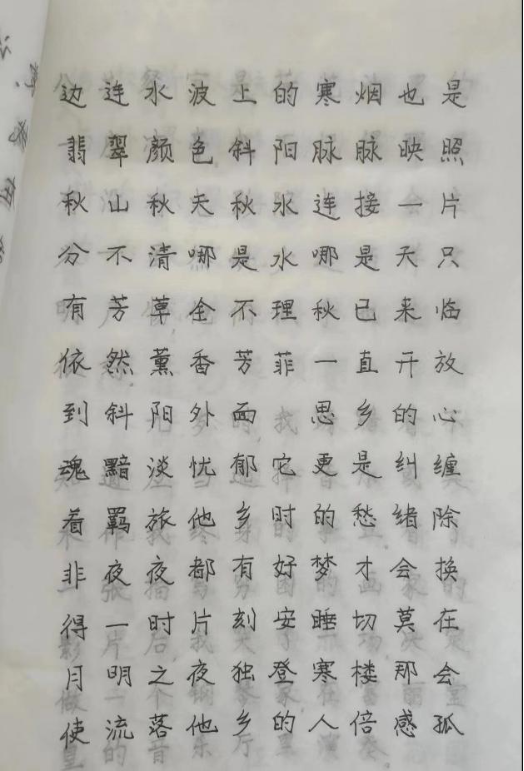 边连水波上的寒烟也是
翡翠颜色斜阳脉脉映照
秋山秋天秋水连接一片
分不清哪是水哪是天只
有芳草全不理秋已来临
依然薰香芳菲一直开放
到斜阳外面 思乡的心
魂黯淡忧郁它更是纠缠
着羁旅他乡时的愁绪除
非夜夜都有好梦才会换
得一时片刻安睡切莫在
月明之夜独登寒楼那会
使流落他乡的人倍感孤